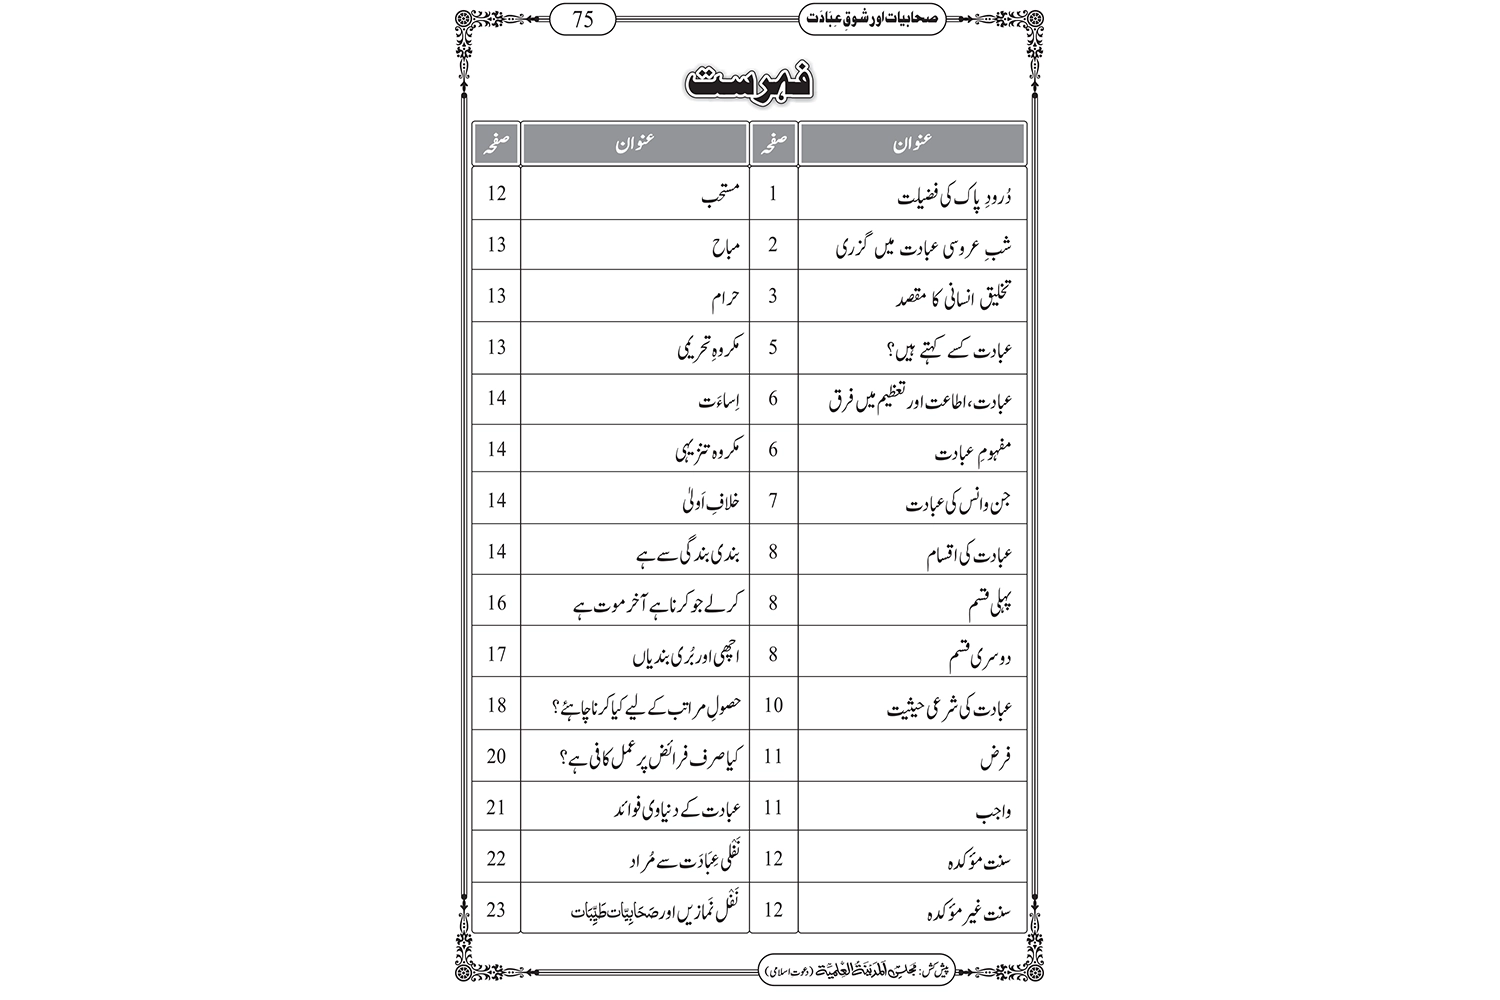 صحابیات اور شوقِ عِبَادَت 75
فہرست
عنوان صفحہ عنوان صفحہ
دُرودِ پاک کی فضیلت 1 مستحب 12
شبِ عروسی عبادت میں گزری 2 مباح 13
تخلیق انسانی کا مقصد 3 حرام 13
عبادت کسے کہتے ہیں؟ 5 مکروہِ تحریمی 13
عبادت، اطاعت اور تعظیم میں فرق 6 اِساءَت 14
مفہومِ عبادت 6 مکروہ تنزیہی 14
جن وانس کی عبادت 7 خلافِ اَولیٰ 14
عبادت کی اقسام 8 بندی بندگی سے ہے 14
پہلی قسم 8 کرلے جو کرنا ہے آخر موت ہے 16
دوسری قسم 8 اچھی اور بُری بندیاں 17
عبادت کی شرعی حیثیت 10 حصولِ مراتب کے لیے کیا کرنا چاہئے؟ 18
فرض 11 کیا صرف فرائض پر عمل کافی ہے؟ 20
واجب 11 عبادت کے دنیاوی فوائد 21
سنت مؤکدہ 12 نَفْلی عِبَادَت سے مُراد 22
سنت غیر مؤکدہ 12 نَفْل نَمازیں اور صَحَابِیَّات طَیِّبَات 23
پیش کش: مجلس المدینۃ العلمیۃ (دعوت اسلامی)